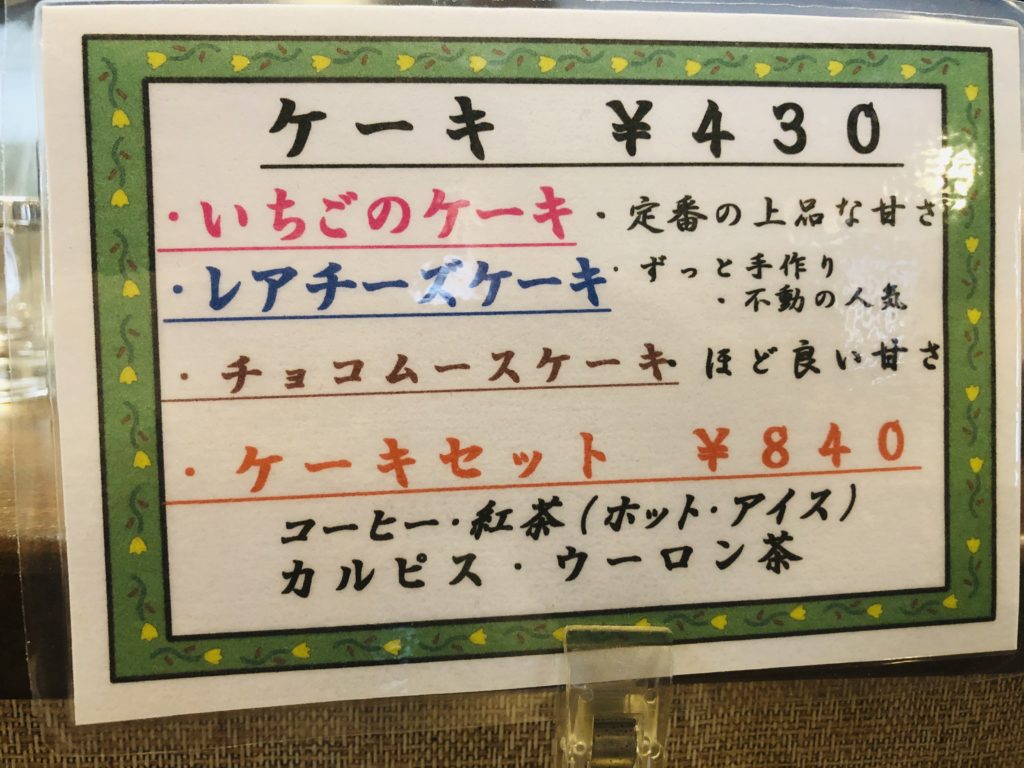 ケーキ ￥430
・いちごのケーキ ・定番の上品な甘さ
・レアチーズケーキ ・ずっと手作り
・不動の人気
・チョコムースケーキ ・ほど良い甘さ
・ケーキセット ￥840
コーヒー・紅茶(ホット・アイス)
カルピス・ウーロン茶